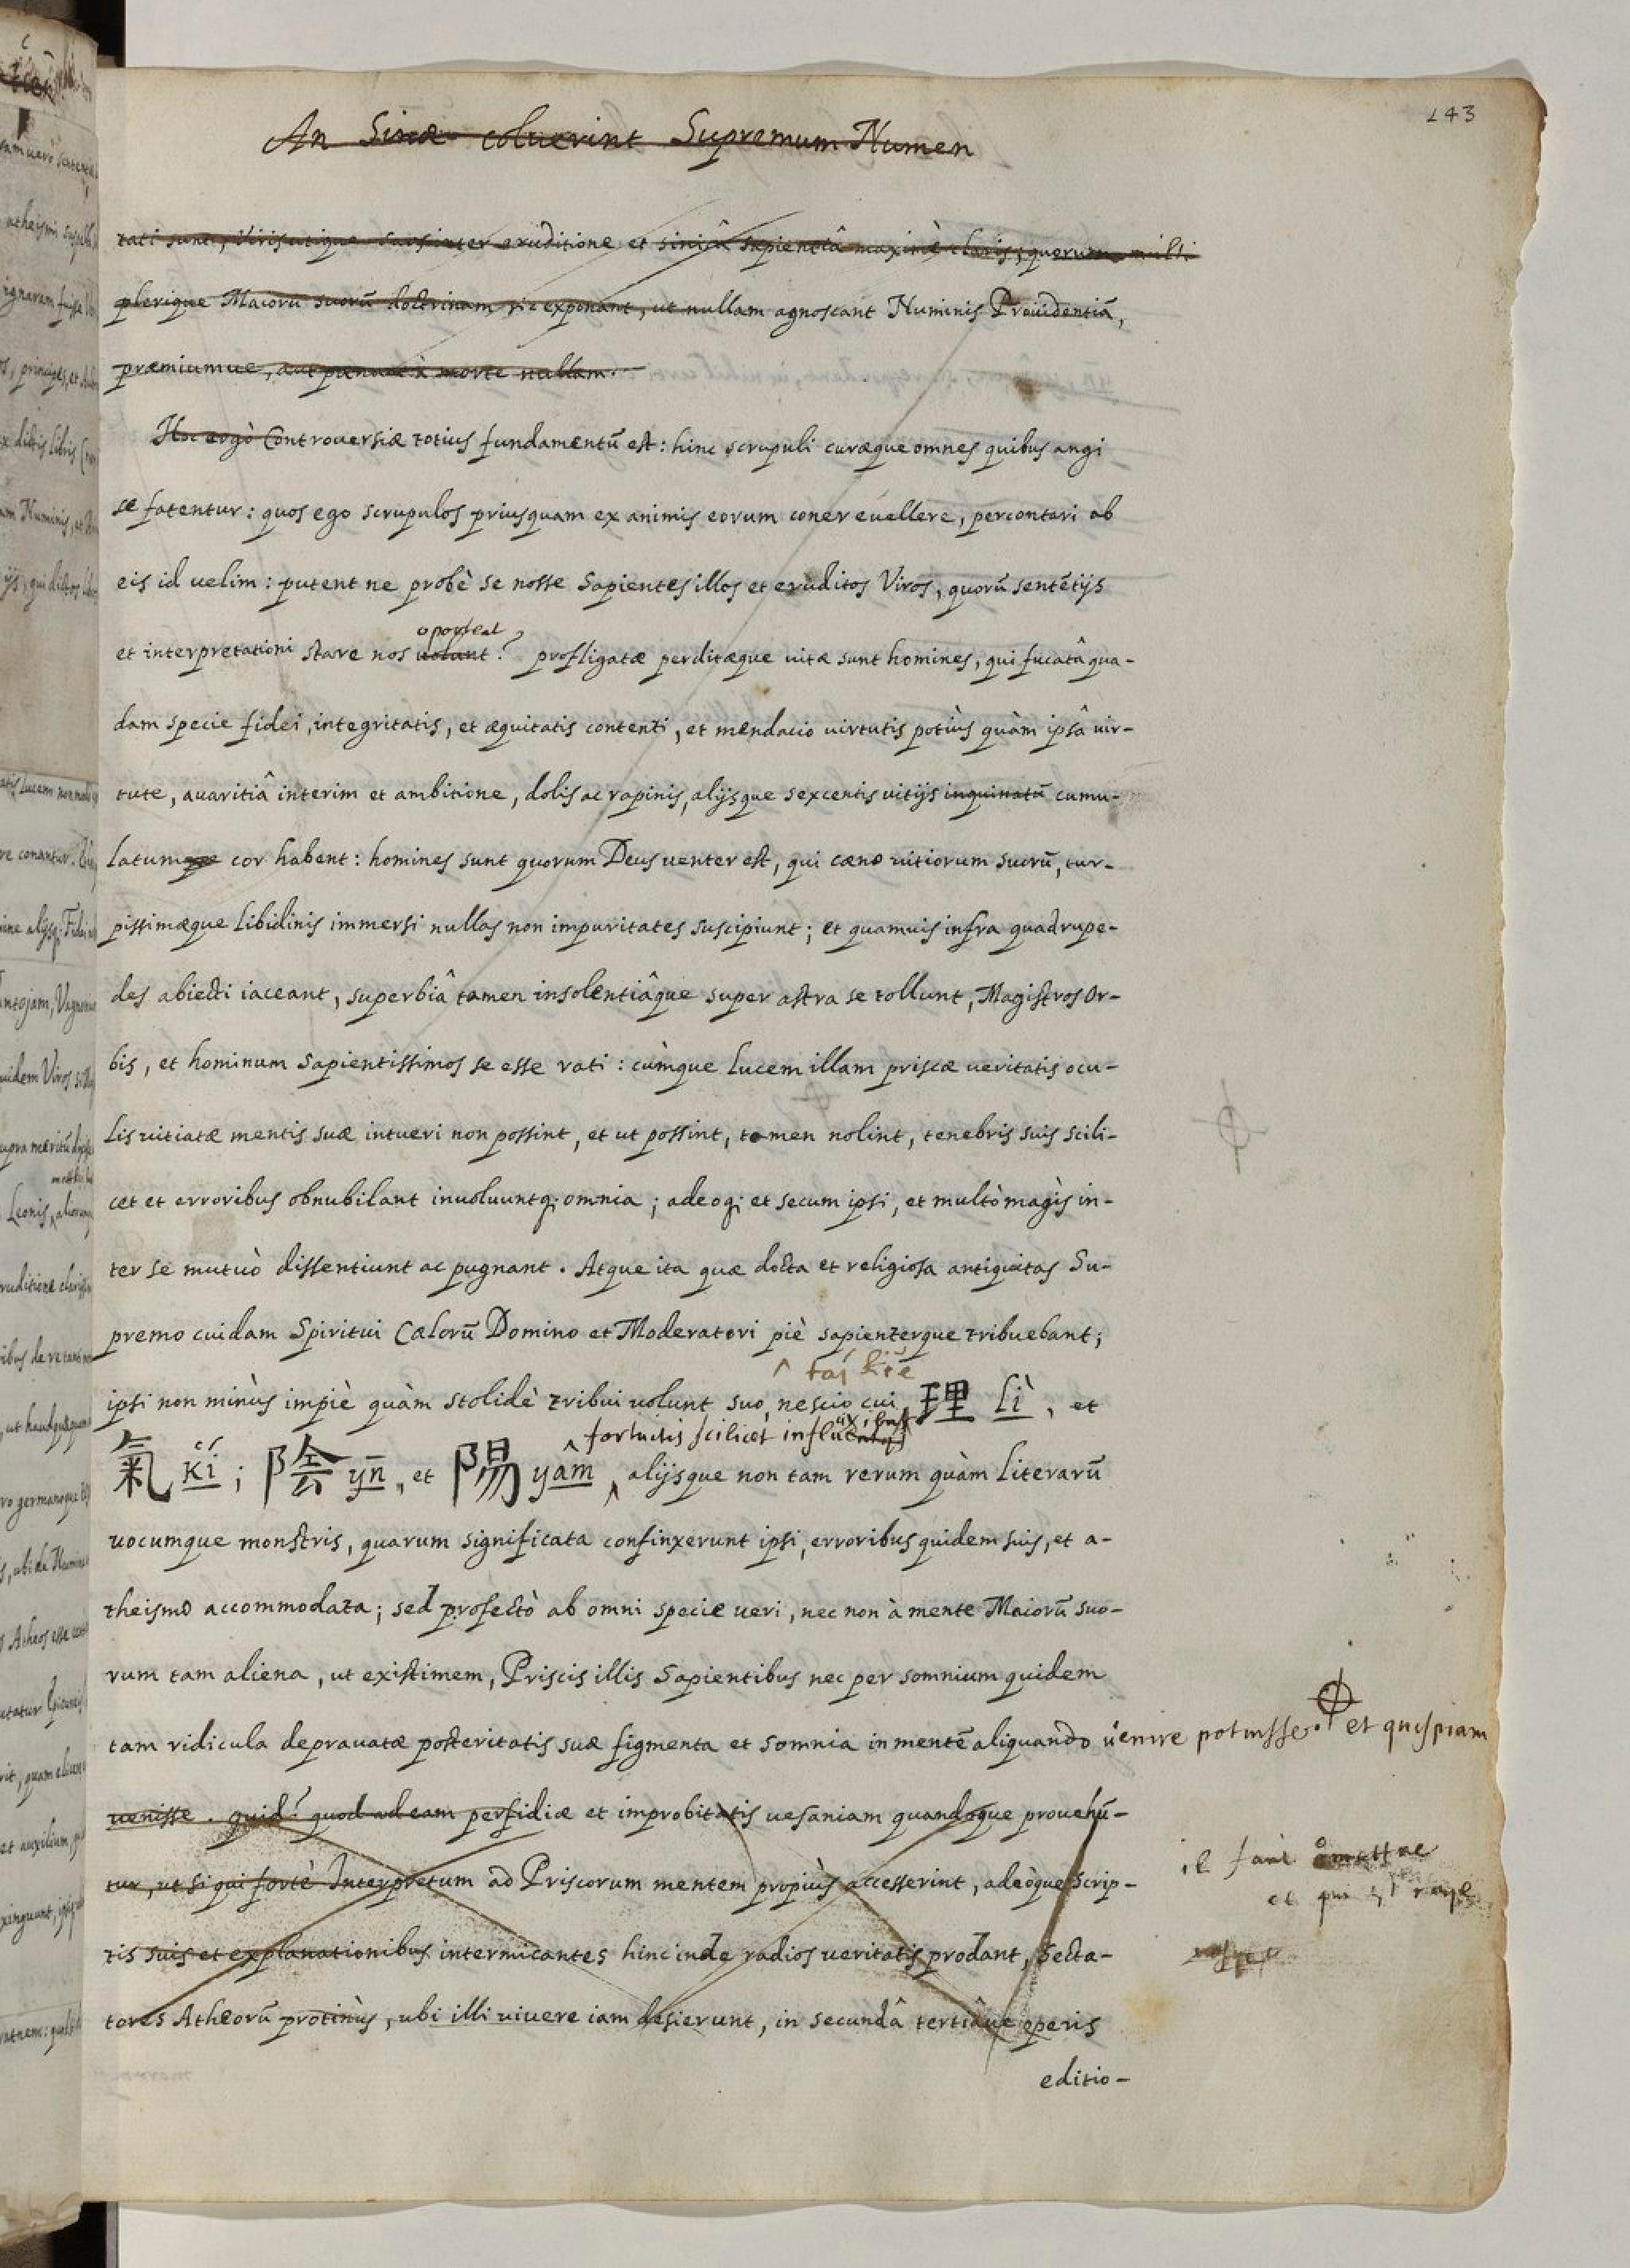 143
An Sinæ coluerint Supremum Numen
rati sunt, Viris utique suos inter eruditione et sinicâ sapientiâ maximè claris; quorum
plerique Maiorū suorū doctrinam sic exponant, ut nullam agnoscant Numinis Prouidentiā,
præmiumue, aut pœnam à morte nullam.
Hoc ergò Controuersiæ totius fundamentū est: hinc scrupuli curæque omnes quibus angi
se fatentur: quos ego scrupulos priusquam ex animis eorum coner euellere, percontari ab
eis id uelim: putent ne probè se nosse Sapientes illos et eruditos Viros, quorū sentētijs
oporteat
et interpretationi stare nos uolunt? profligatæ perditæque uitæ sunt homines, qui fucatâ qua-
dam specie fidei, integritatis, et æquitatis contenti, et mendacio uirtutis potiùs quàm ipsâ uir-
tute, auaritiâ interim et ambitione, dolis ac rapinis, alijsque sexcentis uitijs inquinatū cumu-
latumque cor habent: homines sunt quorum Deus uenter est, qui cæno uitiorum suorū, tur-
pissimæque libidinis immersi nullas non impuritates suscipiunt; et quamuis infra quadrupe-
des abiecti iaceant, superbiâ tamen insolentiâque super astra se tollunt, Magistros Or-
bis, et hominum Sapientissimos se esse rati: cùmque lucem illam priscæ ueritatis ocu-
lis uitiatæ mentis suæ intueri non possint, et ut possint, tamen nolint, tenebris suis scili-
cet et erroribus obnubilant inuoluuntq; omnia; adeoq; et secum ipsi, et multò magìs in-
ter se mutuò dissentiunt ac pugnant. Atque ita quæ docta et religiosa antiquitas Su-
premo cuidam Spiritui Cælorū Domino et Moderatori piè sapienterque tribuebant;
^ tai kiě
ipsi non minùs impiè quàm stolidè tribui uolunt suo, nescio cui, 理 lì, et
fortuitis scilicet influxibus
氣 kí; 陰 yn̄, et 陽 yâm ^ alijsque non tam rerum quàm literarū
uocumque monstris, quarum significata confinxerunt ipsi, erroribus quidem suis, et a-
theismo accommodata; sed profectò ab omni specie ueri, nec non à mente Maiorū suo-
rum tam aliena, ut existimem, Priscis illis Sapientibus nec per somnium quidem
tam ridicula deprauatæ posteritatis suæ figmenta et somnia in mentē aliquando uenire potuisse. et quispiam
uenisse. quid? quod ad eam perfidiæ et improbitatis uesaniam quandoque prouehū-
tur, ut si qui fortè Interpretum ad Priscorum mentem propiùs accesserint, adeòque Scrip-
tis suis et explanationibus intermicantes hinc inde radios ueritatis prodant, Secta-
tores Atheorū protinùs, ubi illi uiuere iam desierunt, in secundâ tertiâue operis
editio-
il faut omettre